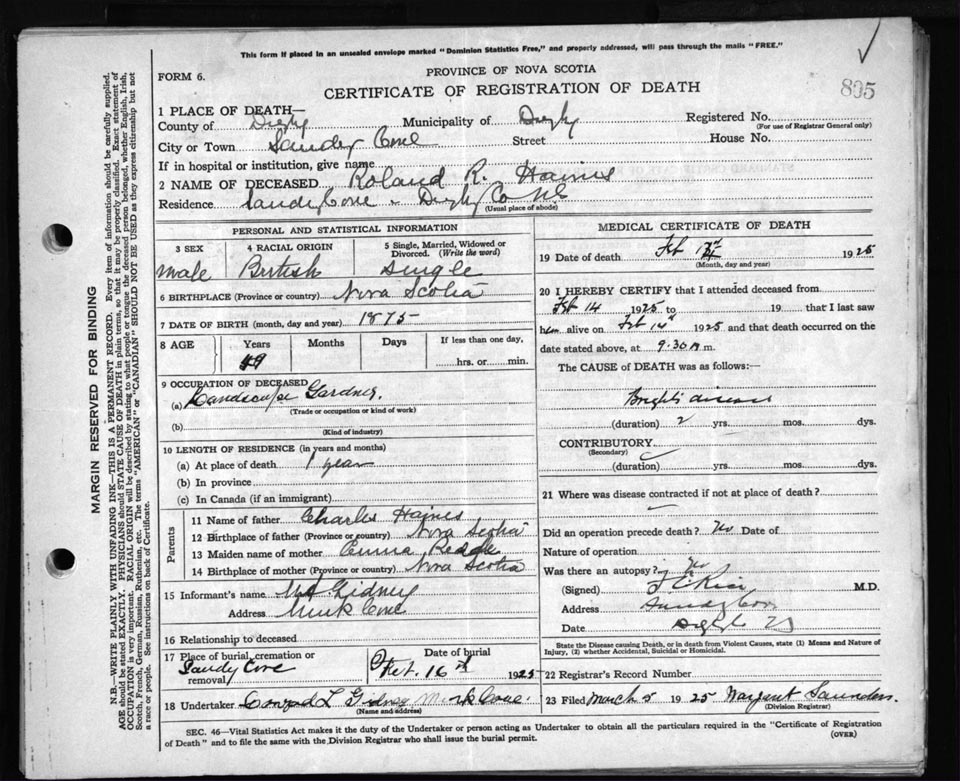 This form if placed in an unsealed envelope marked "Dominion Statistics Free," and properly addressed, will pass through the mails "FREE."
FORM 6.
PROVINCE OF NOVA SCOTIA
CERTIFICATE OF REGISTRATION OF DEATH
805
1 PLACE OF DEATH—
County of Digby Municipality of Digby Registered No.
(For use of Registrar General only)
City or Town Sandy Cove Street House No.
If in hospital or institution, give name
2 NAME OF DECEASED Roland R. Haines
Residence Sandy Cove - Digby Co NS
(Usual place of abode)
PERSONAL AND STATISTICAL INFORMATION
3 SEX 4 RACIAL ORIGIN 5 Single, Married, Widowed or Divorced. (Write the word)
Male British Single
6 BIRTHPLACE (Province or country) Nova Scotia
7 DATE OF BIRTH (month, day and year) 1875
8 AGE Years Months Days If less than one day,
49 hrs. or min.
9 OCCUPATION OF DECEASED
(a) Landscape Gardner.
(Trade or occupation or kind of work)
(b)
(Kind of industry)
10 LENGTH OF RESIDENCE (in years and months)
(a) At place of death 1 year
(b) In province
(c) In Canada (if an immigrant)
Parents
11 Name of father Charles Haines
12 Birthplace of father (Province or country) Nova Scotia
13 Maiden name of mother Emma
14 Birthplace of mother (Province or country) Nova Scotia
15 Informant's name Gidney
Address Mink Cove
16 Relationship to deceased
17 Place of burial, cremation or removal Sandy Cove
Date of burial Feb. 16th 1925
18 Undertaker Conrad L Gidney Mink Cove.
(Name and address)
MEDICAL CERTIFICATE OF DEATH
19 Date of death Feb 1925
(Month, day and year)
20 I HEREBY CERTIFY that I attended deceased from
Feb 14 1925 to 19 that I last saw
him alive on Feb 14th 1925 and that death occurred on the
date stated above, at 9.30 m.
The CAUSE of DEATH was as follows:—
Brights disease
(duration) 2 yrs. mos. dys.
CONTRIBUTORY
(Secondary)
(duration) yrs. mos. dys.
21 Where was disease contracted if not at place of death?
Did an operation precede death? No Date of
Nature of operation
Was there an autopsy? No
(Signed) Rice M.D.
Address Sandy Cove
Date Digby
State the Disease causing Death, or in death from Violent Causes, state (1) Means and Nature of Injury, (2) whether Accidental, Suicidal or Homicidal.
22 Registrar's Record Number
23 Filed March 5 1925 Margaret Saunders.
(Division Registrar)
SEC. 46—Vital Statistics Act makes it the duty of the Undertaker or person acting as Undertaker to obtain all the particulars required in the "Certificate of Registration
of Death" and to file the same with the Division Registrar who shall issue the burial permit.
(OVER)
MARGIN RESERVED FOR BINDING
N.B.—WRITE PLAINLY WITH UNFADING INK—THIS IS A PERMANENT RECORD. Every item of information should be carefully supplied.
AGE should be stated EXACTLY. PHYSICIANS should STATE CAUSE OF DEATH in plain terms, so that it may be properly classified. Exact statement of
OCCUPATION is very important. RACIAL ORIGIN will be described by stating to what people or tongue the deceased person belonged, whether English, Irish,
Scotch, French, German, Russian, Ruthenian, etc. The terms "AMERICAN" or "CANADIAN" SHOULD NOT BE USED as they express citizenship but not
a race or people. See instructions on back of Certificate.